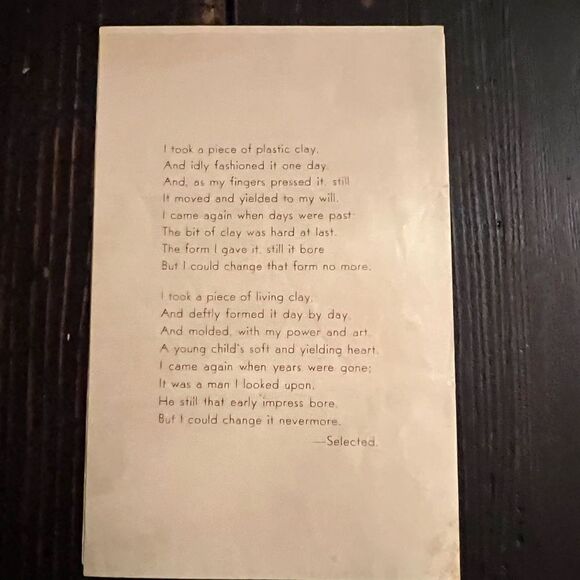 I took a piece of plastic clay,
And idly fashioned it one day.
And, as my fingers pressed it, still
It moved and yielded to my will.
I came again when days were past:
The bit of clay was hard at last.
The form I gave it, still it bore
But I could change that form no more.
I took a piece of living clay,
And deftly formed it day by day.
And molded, with my power and art.
A young child's soft and yielding heart.
I came again when years were gone;
It was a man I looked upon.
He still that early impress bore.
But I could change it nevermore.
—Selected.